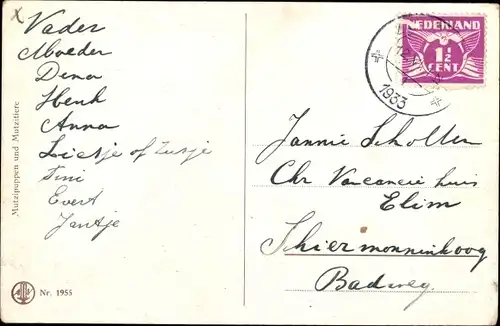 Vader
Moeder
Dena
Henk
Anna
Lietje of Zusje
Tini
Evert
Jantje
Mutzipuppen und Mutzitiere
Nr. 1955
NEDERLAND
1½
CENT
1933
Jannie Scholten
Chr Vacancie huis
Elim
Schiermonninkoog
Badweg